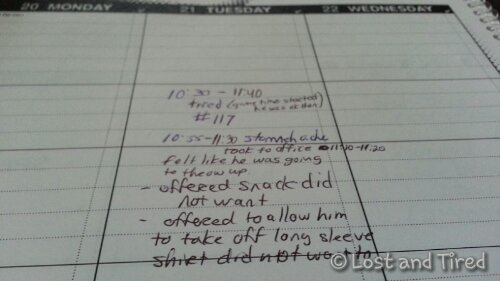 20 MONDAY
21 TUESDAY
22 WEDNESDAY
10:30 - 11:40
tired (quiet time started
he was ok then)
#117
10:55-11:30 stomach ache
took to office 11:10-11:20
felt like he was going
to throw up
- offered snack did
not want
- offered to allow him
to take off long sleeve
shirt did not want to
© Lost and Tired